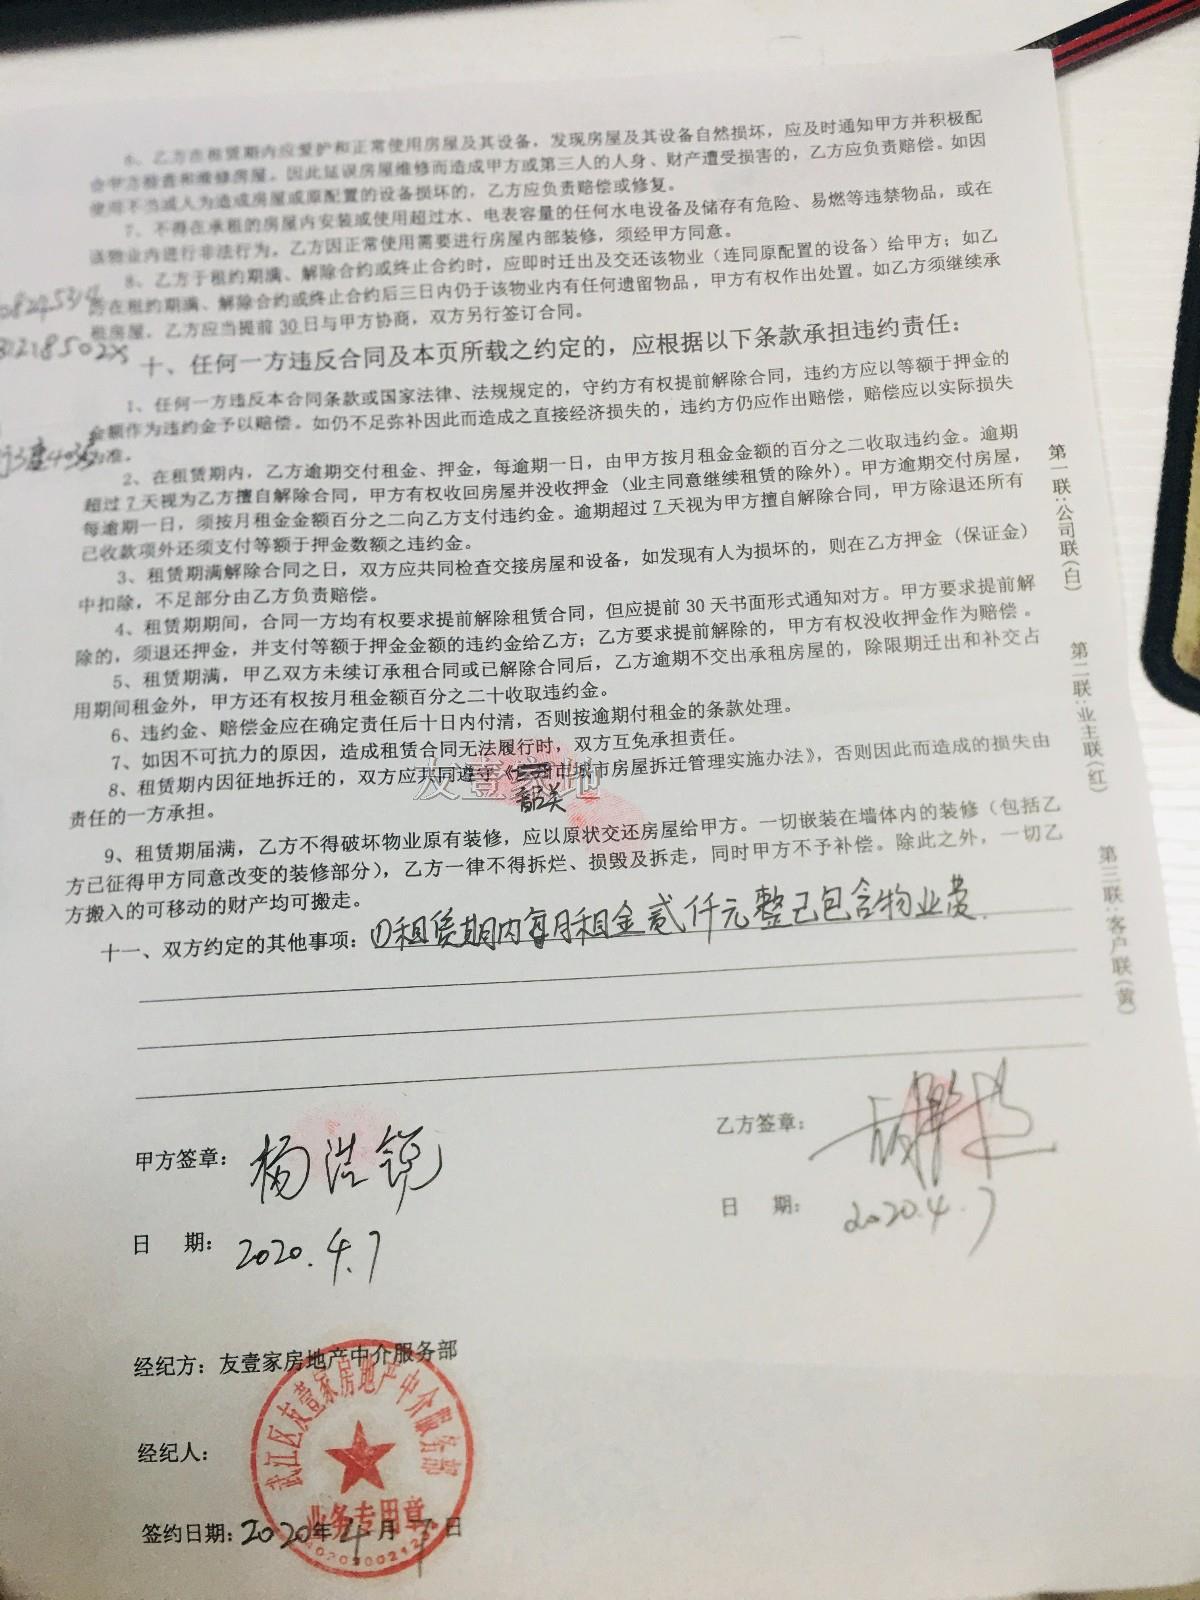 6、乙方在租赁期内应爱护和正常使用房屋及其设备，发现房屋及其设备自然损坏，应及时通知甲方并积极配
合甲方检查和维修房屋。因此延误房屋维修而造成甲方或第三人的人身、财产遭受损害的，乙方应负责赔偿。如因
使用不当或人为造成房屋或原配置的设备损坏的，乙方应负责赔偿或修复。
7、不得在承租的房屋内安装或使用超过水、电表容量的任何水电设备及储存有危险、易燃等违禁物品，或在
该物业内进行非法行为。乙方因正常使用需要进行房屋内部装修，须经甲方同意。
8、乙方于租约期满、解除合约或终止合约时，应即时迁出及交还该物业（连同原配置的设备）给甲方；如乙
方在租约期满、解除合约或终止合约后三日内仍于该物业内有任何遗留物品，甲方有权作出处置。如乙方须继续承
租房屋，乙方应当提前30日与甲方协商，双方另行签订合同。
十、任何一方违反合同及本页所载之约定的，应根据以下条款承担违约责任：
1、任何一方违反本合同条款或国家法律、法规规定的，守约方有权提前解除合同，违约方应以等额于押金的
金额作为违约金予以赔偿。如仍不足弥补因此而造成之直接经济损失的，违约方仍应作出赔偿，赔偿应以实际损失
准。
2、在租赁期内，乙方逾期交付租金、押金，每逾期一日，由甲方按月租金金额的百分之二收取违约金。逾期
超过7天视为乙方擅自解除合同，甲方有权收回房屋并没收押金（业主同意继续租赁的除外）。甲方逾期交付房屋，
每逾期一日，须按月租金金额百分之二向乙方支付违约金。逾期超过7天视为甲方擅自解除合同，甲方除退还所有
已收款项外还须支付等额于押金数额之违约金。
3、租赁期满解除合同之日，双方应共同检查交接房屋和设备，如发现有人为损坏的，则在乙方押金（保证金）
中扣除，不足部分由乙方负责赔偿。
4、租赁期期间，合同一方均有权要求提前解除租赁合同，但应提前30天书面形式通知对方。甲方要求提前解
除的，须退还押金，并支付等额于押金金额的违约金给乙方；乙方要求提前解除的，甲方有权没收押金作为赔偿。
5、租赁期满，甲乙双方未续订承租合同或已解除合同后，乙方逾期不交出承租房屋的，除限期迁出和补交占
用期间租金外，甲方还有权按月租金额百分之二十收取违约金。
6、违约金、赔偿金应在确定责任后十日内付清，否则按逾期付租金的条款处理。
7、如因不可抗力的原因，造成租赁合同无法履行时，双方互免承担责任。
8、租赁期内因征地拆迁的，双方应共同遵守《市城市房屋拆迁管理实施办法》，否则因此而造成的损失由
韶关
责任的一方承担。
9、租赁期届满，乙方不得破坏物业原有装修，应以原状交还房屋给甲方。一切嵌装在墙体内的装修（包括乙
方已征得甲方同意改变的装修部分），乙方一律不得拆烂、损毁及拆走，同时甲方不予补偿。除此之外，一切乙
方搬入的可移动的财产均可搬走。
十一、双方约定的其他事项：①租赁期内每月租金贰仟元整已包含物业费.
第一联：公司联（白）
第二联：业主联（红）
第三联：客户联（黄）
甲方签章：杨浩锐
乙方签章：
日 期：2020.4.7
日 期：2020.4.7
经纪方：友壹家房地产中介服务部
武江区友壹家房地产中介服务部
经纪人：
业务专用章
签约日期：2020年4月7日